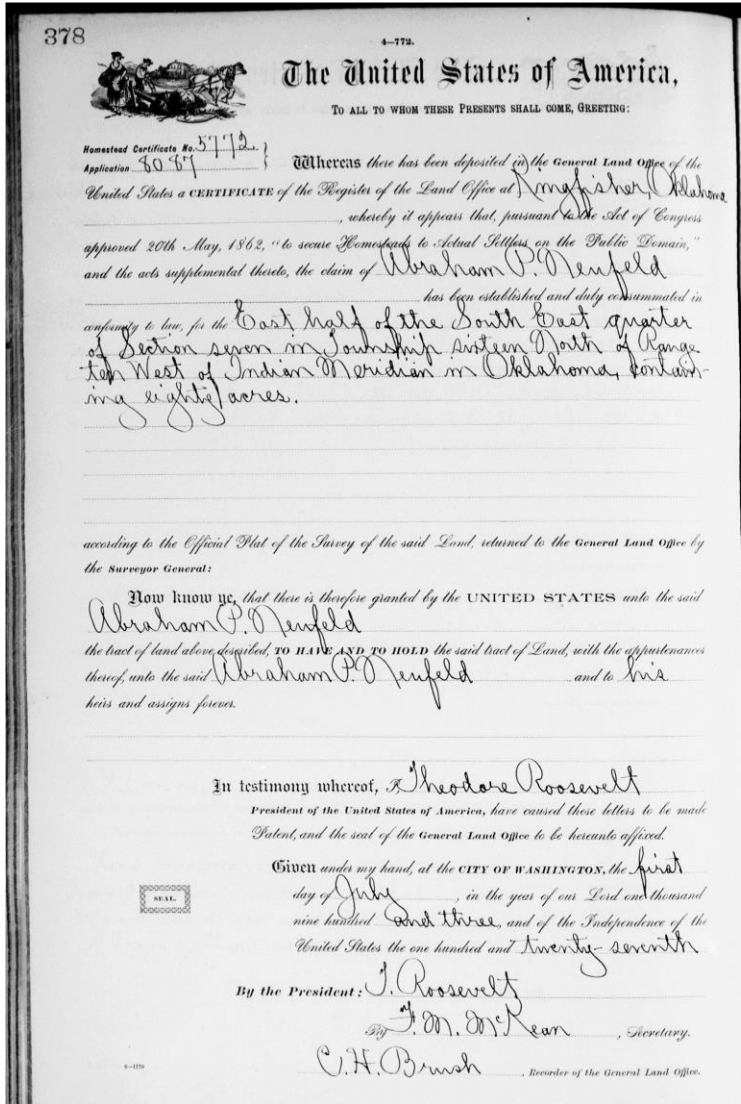 378
4—772.
The United States of America,
TO ALL TO WHOM THESE PRESENTS SHALL COME, GREETING:
Homestead Certificate No. 5772.
Application 8087
Whereas there has been deposited in the General Land Office of the
United States a CERTIFICATE of the Register of the Land Office at Kingfisher, Oklahoma
, whereby it appears that, pursuant to the Act of Congress
approved 20th May, 1862, "to secure Homesteads to Actual Settlers on the Public Domain,"
and the acts supplemental thereto, the claim of Abraham P. Neufeld
has been established and duly consummated in
conformity to law, for the East half of the South East quarter
of Section seven in Township sixteen North of Range
ten West of Indian Meridian in Oklahoma, contain-
ing eighty acres.
according to the Official Plat of the Survey of the said Land, returned to the General Land Office by
the Surveyor General:
Now know ye, that there is therefore granted by the UNITED STATES unto the said
Abraham P. Neufeld
the tract of land above described, TO HAVE AND TO HOLD the said tract of Land, with the appurtenances
thereof, unto the said Abraham P. Neufeld and to his
heirs and assigns forever.
In testimony whereof, I, Theodore Roosevelt
President of the United States of America, have caused these letters to be made
Patent, and the seal of the General Land Office to be hereunto affixed.
Given under my hand, at the CITY OF WASHINGTON, the first
day of July, in the year of our Lord one thousand
nine hundred and three, and of the Independence of the
United States the one hundred and twenty-seventh
SEAL.
By the President: T. Roosevelt,
By F. M. McKean, Secretary.
C. H. Brush, Recorder of the General Land Office.